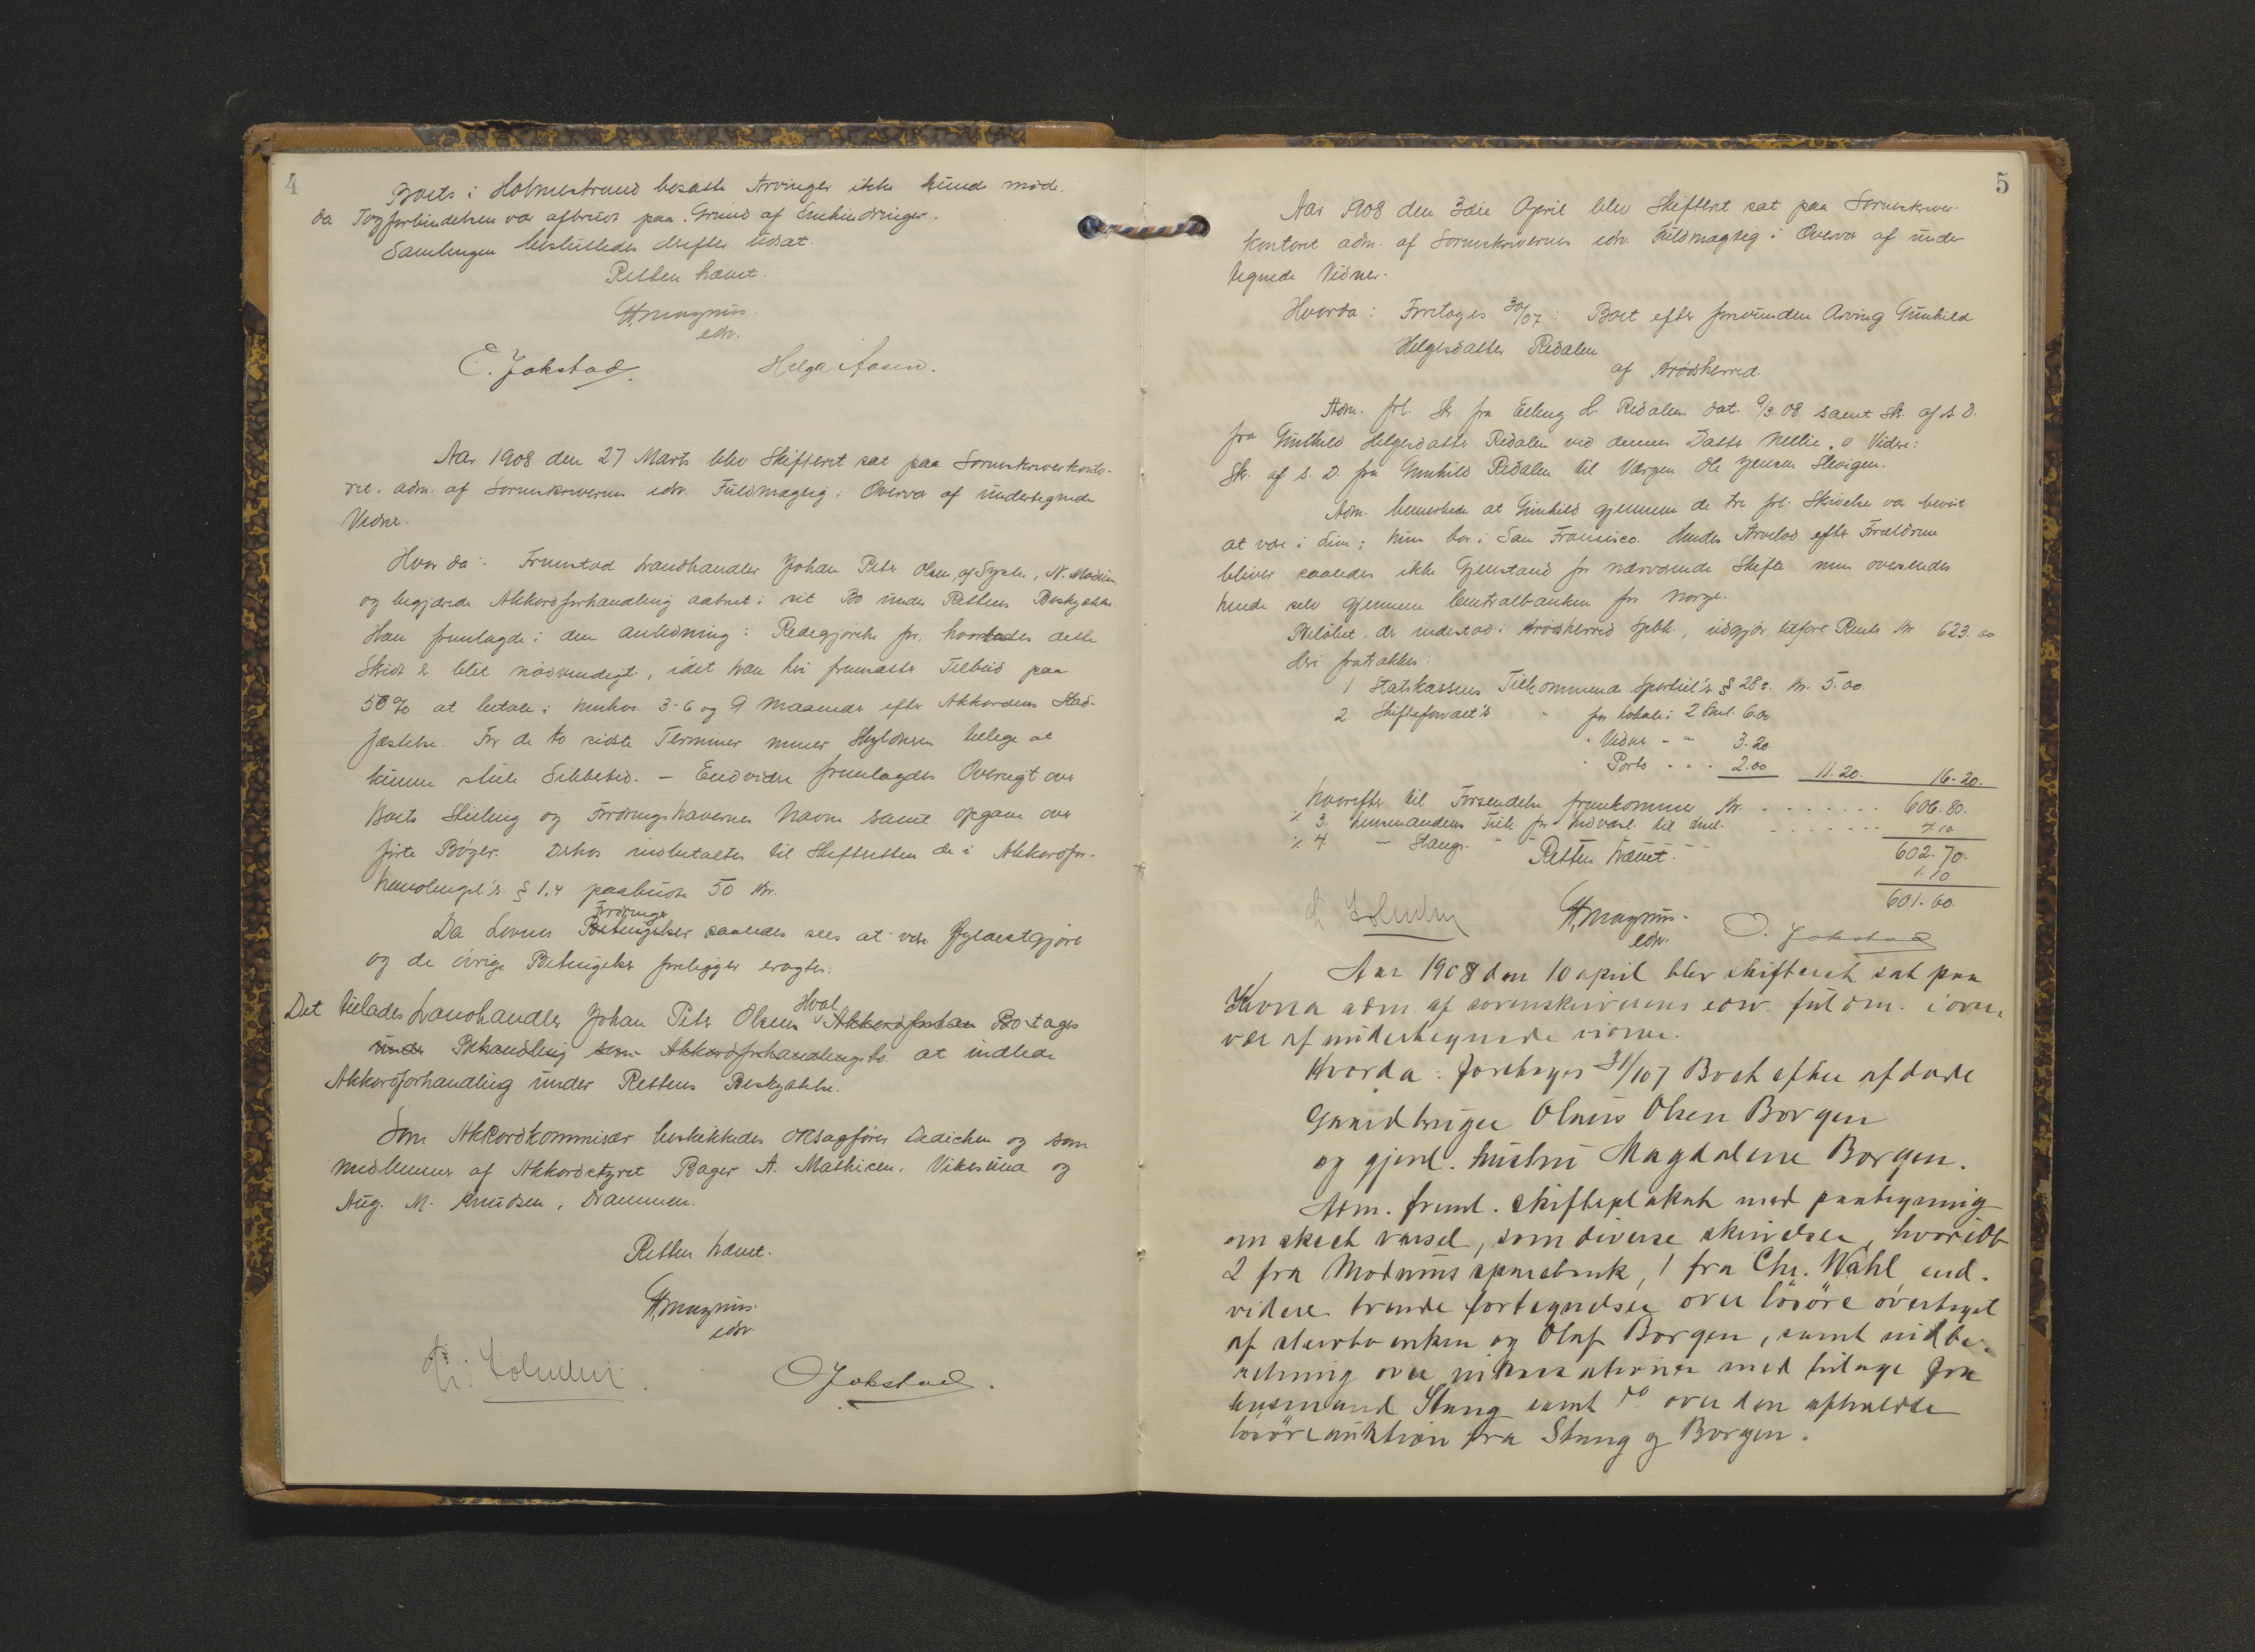 4
Boets i Holmestrand bosatte Arvinger ikke kunde møde.
da Togforbindelsen var afbrudt paa Grund af Snehindringer.
Samlingen besluttedes derfor udsat.
Retten hævet.
H. Magnus.
edv.
E. Jokstad. Helga Aasen.
Aar 1908 den 27 Marts blev Skifteret sat paa Sorenskriverkonto-
ret. adm. af Sorenskriverens edv. Fuldmægtig i Overvær af undertegnede
Vidner.
Hvor da: Fremstod Landhandler Johan Peter Olsen, af Sysle, N. Modum
og begjærede Akkordforhandling aabnet i sit Bo under Rettens Beskyttelse.
Han fremlagde i den anledning: Redegjørelse for, hvorledes dette
Skridt er blit nødvendigt, idet han heri fremsatte Tilbud paa
50% at betale i henhos. 3-6 og 9 Maaneder efter Akkordens Stad-
fæstelse. For de to sidste Terminer mener Skyldneren tillige at
kunne stille Sikkerhed. – Endvidere fremlagdes Oversigt over
Boets Stilling og Fordringshavernes Navne samt opgave over
førte Bøger. Derhos indbetaltes til Skifteretten de i Akkordfor-
handlingsl's. § 1.4 paabudte 50 Kr.
Fordringer
Da Lovens Betingelser saaledes sees at være fyldestgjort
og de øvrige Betingelser foreligger eragtes:
Hval
Det tillades Landhandler Johan Peter Olsen Akkordforhan Bo tages
under Behandling som Akkordforhandlingsbo. at indlede
Akkordforhandling under Rettens Beskyttelse.
Som Akkordkommisær beskikkedes ORsagfører Dedichen og som
medlemmer af Akkordstyret Bager A. Mathisen, Vikesund og
Aug. M. Knudsen, Drammen.
Retten hævet.
H. Magnus.
edv.
Jokstad.
5
Aar 1908 den 3die April blev Skifteret sat paa Sorenskriver-
kontoret adm. af Sorenskriverens edv. Fuldmægtig i Overvær af under
tegnede Vidner.
Hvorda: Foretoges 30/07: Boet efter forsvunden Arving Gunhild
Helgesdatter Redalen
af Krødsherred.
Adm. frl. Sk. fra Elling H. Redalen dat. 9/3 08 samt Sk. af s D.
fra Gunhild Helgesdatter Redalen ved dennes Datter Nellie. Videre:
Sk. af s. D. fra Gunhild Redalen til Værgen Ole Jensen Slevigen.
Adm. bemerkede at Gunhild gjennem de tre frl. Skrivelser var bevist
at være i Live; hun bor i San Fransisco. Hendes Arvelod efter Forældrene
bliver saaledes ikke Gjenstand for nærværende Skifte men oversendes
hende selv gjennem Centralbanken for Norge.
Beløbet, der indestod i Krødsherred Spbk., udgjør tilført Rente Kr 623.00
Heri fratrækkes:
1 Statskassens Tilkommende Sportell's § 28c. Kr. 5.00.
2 Skifteforvalt's " for Lokale i 2 Saml. 6.00
" Vidner - " 3.20.
" Porto - " - 2.00 11.20. 16.20.
hvorefter til Forsendelse fremkommer Kr. - - - - - 606.80.
% 3. Lensmandens Tilk. for Indvarsl. til Saml. - - - - - 4.10
% 4. – Stangs. - - - 602.70.
Retten hævet. 1.10
601.60.
H. Magnus.
edv.
O. Jokstad
Aar 1908 den 10 april blev skifteret sat paa
Krona adm. af sorenskriverens edv. fuldm. i over
vær af undertegnede vidner.
Hvorda: foretoges 31/107 Boet efter afdøde
Gaardbruger Olaus Olsen Borgen
og gjenl. hustru Magdalene Borgen.
Adm. freml. skifteplakat med paategning
om skeet varsel, som diverse skrivelser, hvoribl
2 fra Modums sparebank, 1 fra Chr. Wahl, end-
videre trende fortegnelser over løsøre overtaget
af sterboenken og Olaf Borgen, samt indbe-
retning over inkassationer med bilage fra
lensmand Stang samt do over den afholdte
løsøreauktion fra Stang og Borgen.